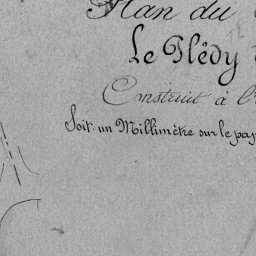 Plan du
Le Plédy
Construit à l'
Soit: un Millimètre sur le pap